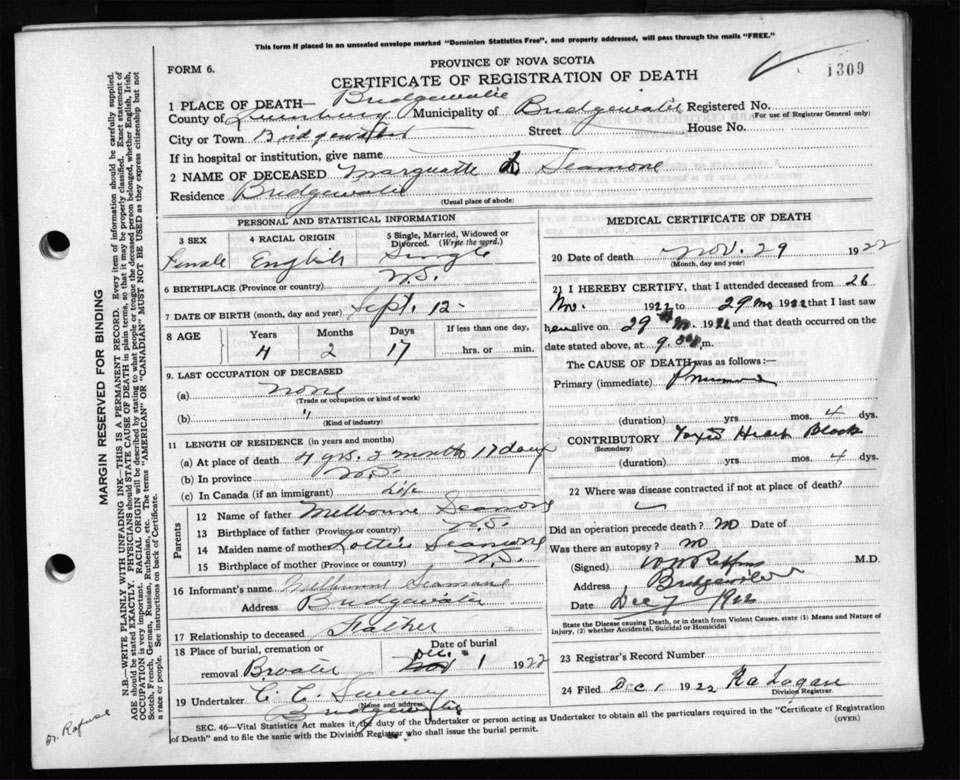 This form if placed in an unsealed envelope marked "Dominion Statistics Free", and properly addressed, will pass through the mails "FREE."
FORM 6.
PROVINCE OF NOVA SCOTIA
CERTIFICATE OF REGISTRATION OF DEATH
1309
1 PLACE OF DEATH— Bridgewater
County of Lunenburg Municipality of Bridgewater Registered No.
(For use of Registrar General only)
City or Town Bridgewater Street House No.
If in hospital or institution, give name
2 NAME OF DECEASED Seamone
Residence Bridgewater
(Usual place of abode)
PERSONAL AND STATISTICAL INFORMATION
3 SEX
Female
4 RACIAL ORIGIN
English
5 Single, Married, Widowed or Divorced. (Write the word.)
Single
6 BIRTHPLACE (Province or country) N.S.
7 DATE OF BIRTH (month, day and year) Sept. 12
8 AGE
Years Months Days If less than one day,
4 2 17 hrs. or min.
9. LAST OCCUPATION OF DECEASED
(a) none
(Trade or occupation or kind of work)
(b) "
(Kind of industry)
11 LENGTH OF RESIDENCE (in years and months)
(a) At place of death 4 yrs. 2 month 17 days
(b) In province N.S.
(c) In Canada (if an immigrant) Life
Parents
12 Name of father Melbourne
13 Birthplace of father (Province or country) N.S.
14 Maiden name of mother Lottie Seamone
15 Birthplace of mother (Province or country) N.S.
16 Informant's name Seamone
Address Bridgewater
17 Relationship to deceased Father
18 Place of burial, cremation or Date of burial
removal B.water Dec. 1 1922
19 Undertaker C. C.
(Name and address)
Bridgewater
MEDICAL CERTIFICATE OF DEATH
20 Date of death Nov. 29 1922
(Month, day and year)
21 I HEREBY CERTIFY, that I attended deceased from 26
1922 to 29 1922 that I last saw
her alive on 29 1922 and that death occurred on the
date stated above, at 9. m.
The CAUSE OF DEATH was as follows:—
Primary (immediate) Pneumonia
(duration) yrs mos. 4 dys.
CONTRIBUTORY Heart Block
(Secondary)
(duration) yrs. mos. 4 dys.
22 Where was disease contracted if not at place of death?
Did an operation precede death? no Date of
Was there an autopsy? no
(Signed) M.D.
Address Bridgewater
Date Dec 7 1922
State the Disease causing Death, or in death from Violent Causes. state (1) Means and Nature of
Injury, (2) whether Accidental, Suicidal or Homicidal
23 Registrar's Record Number
24 Filed Dec 1 1922 Logan
Division Registrar.
SEC. 46—Vital Statistics Act makes it the duty of the Undertaker or person acting as Undertaker to obtain all the particulars required in the "Certificate of Registration
of Death" and to file the same with the Division Registrar who shall issue the burial permit.
(OVER)
MARGIN RESERVED FOR BINDING
N.B.—WRITE PLAINLY WITH UNFADING INK—THIS IS A PERMANENT RECORD. Every item of information should be carefully supplied.
AGE should be stated EXACTLY. PHYSICIANS should STATE CAUSE OF DEATH in plain terms, so that it may be properly classified. Exact statement of
OCCUPATION is very important. RACIAL ORIGIN will be described by stating to what people or tongue the deceased person belonged, whether English, Irish,
Scotch, French, German, Russian, Ruthenian, etc. The terms "AMERICAN" OR "CANADIAN" MUST NOT BE USED as they express citizenship but not
a race or people. See instructions on back of Certificate.
Dr. Rafuse